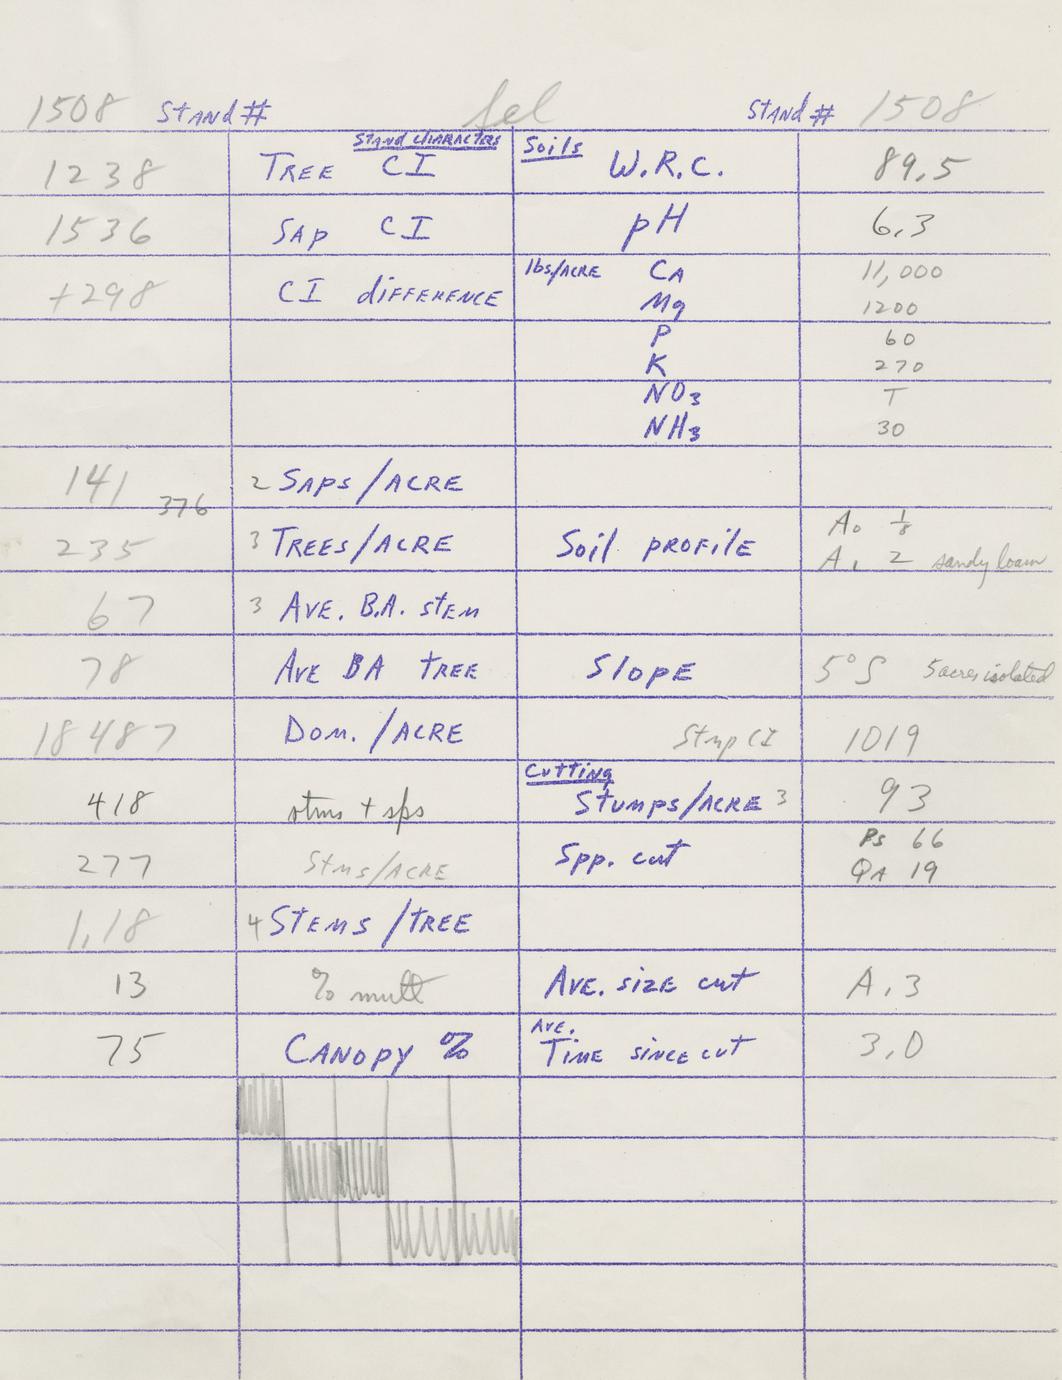 1508 Stand # Sel Stand # 1508
Stand Characters Soils
1238 Tree CI W.R.C. 89.5
1536 Sap CI pH 6.3
+298 CI difference lbs/Acre Ca 11,000
Mg 1200
P 60
K 270
NO3 T
NH3 30
141 2 Saps/Acre
376
235 3 Trees/Acre Soil profile A0 1/8
A1 2 sandy loam
67 3 Ave. B.A. stem
78 Ave BA tree Slope 5°S 5 acres isolated
18487 Dom./Acre Stmp CI 1019
Cutting
418 stms + sps Stumps/Acre 3 93
277 Stms/Acre Spp. cut Ps 66
QA 19
1.18 4 Stems/tree
13 % mult Ave. size cut A.3
75 Canopy % Ave. Time since cut 3.0